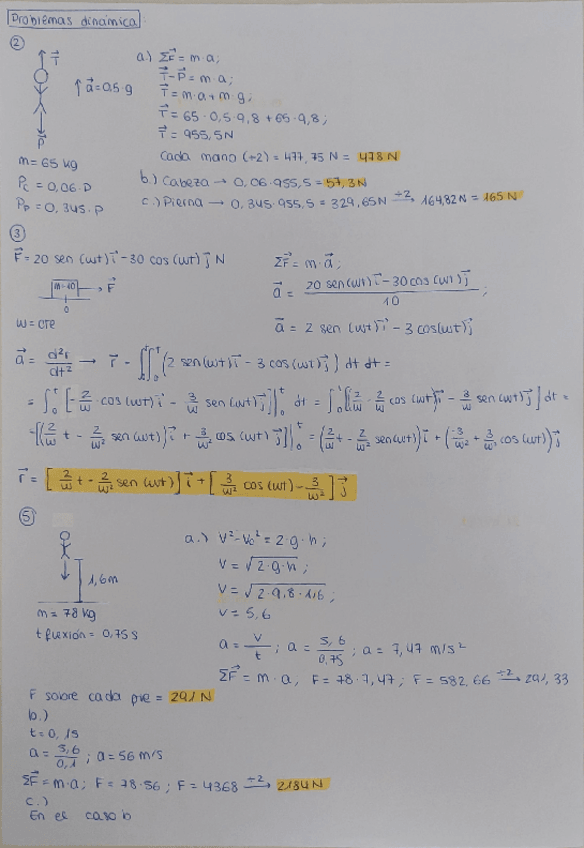 Problemas dinámica:
②
T⃗
a⃗=0,5·g
P⃗
m=65 kg
Pc = 0,06·P
Pp=0,345·P
a.) ΣF⃗ = m·a;
T⃗-P⃗ = m·a;
T⃗=m·a+m·g;
T⃗= 65·0,5·9,8 +65·9,8;
T⃗= 955,5N
Cada mano (÷2) = 477,75 N = 478 N
b.) Cabeza → 0,06·955,5 = 57,3N
c.) Pierna → 0,345·955,5 = 329,65N →÷2 164,82N = 165 N
③
F⃗=20 sen (ωt) i⃗ -30 cos (ωt) j⃗ N
m=10 → F⃗
0
ω = cte
ΣF⃗ = m·a⃗;
a⃗ = (20 sen(ωt) i⃗ -30cos (ωt) j⃗)/10;
a⃗ = 2 sen (ωt) i⃗ - 3 cos(ωt) j⃗
a⃗ = d²r/dt² → r⃗ = ∬₀ᵗ (2 sen(ωt) i⃗ - 3 cos(ωt) j⃗) dt dt =
= ∫₀ᵗ [-2/ω · cos (ωt) i⃗ - 3/ω sen(ωt) j⃗]|₀ᵗ dt = ∫₀ᵗ [(2/ω - 2/ω cos (ωt)) i⃗ - 3/ω sen(ωt) j⃗] dt =
=[(2/ω t - 2/ω² sen (ωt)) i⃗ + 3/ω² cos (ωt) j⃗]|₀ᵗ = (2/ω t - 2/ω² sen(ωt)) i⃗ + (-3/ω² + 3/ω² cos (ωt)) j⃗
r⃗ = [2/ω t - 2/ω² sen (ωt)] i⃗ + [3/ω² cos (ωt) - 3/ω²] j⃗
⑤
1,6m
m = 78 kg
t flexión = 0,75 s
a.) V²-V₀² = 2·g·h;
V = √(2·g·h);
V = √(2·9,8·1,6);
V = 5,6
a = V/t; a = 5,6/0,75; a = 7,47 m/s²
ΣF⃗ = m·a; F= 78·7,47; F = 582,66 →÷2 291,33
F sobre cada pie = 291 N
b.)
t=0,1s
a = 5,6/0,1; a=56 m/s
ΣF⃗ = m·a; F = 78·56; F = 4368 →÷2 2184 N
c.)
En el caso b